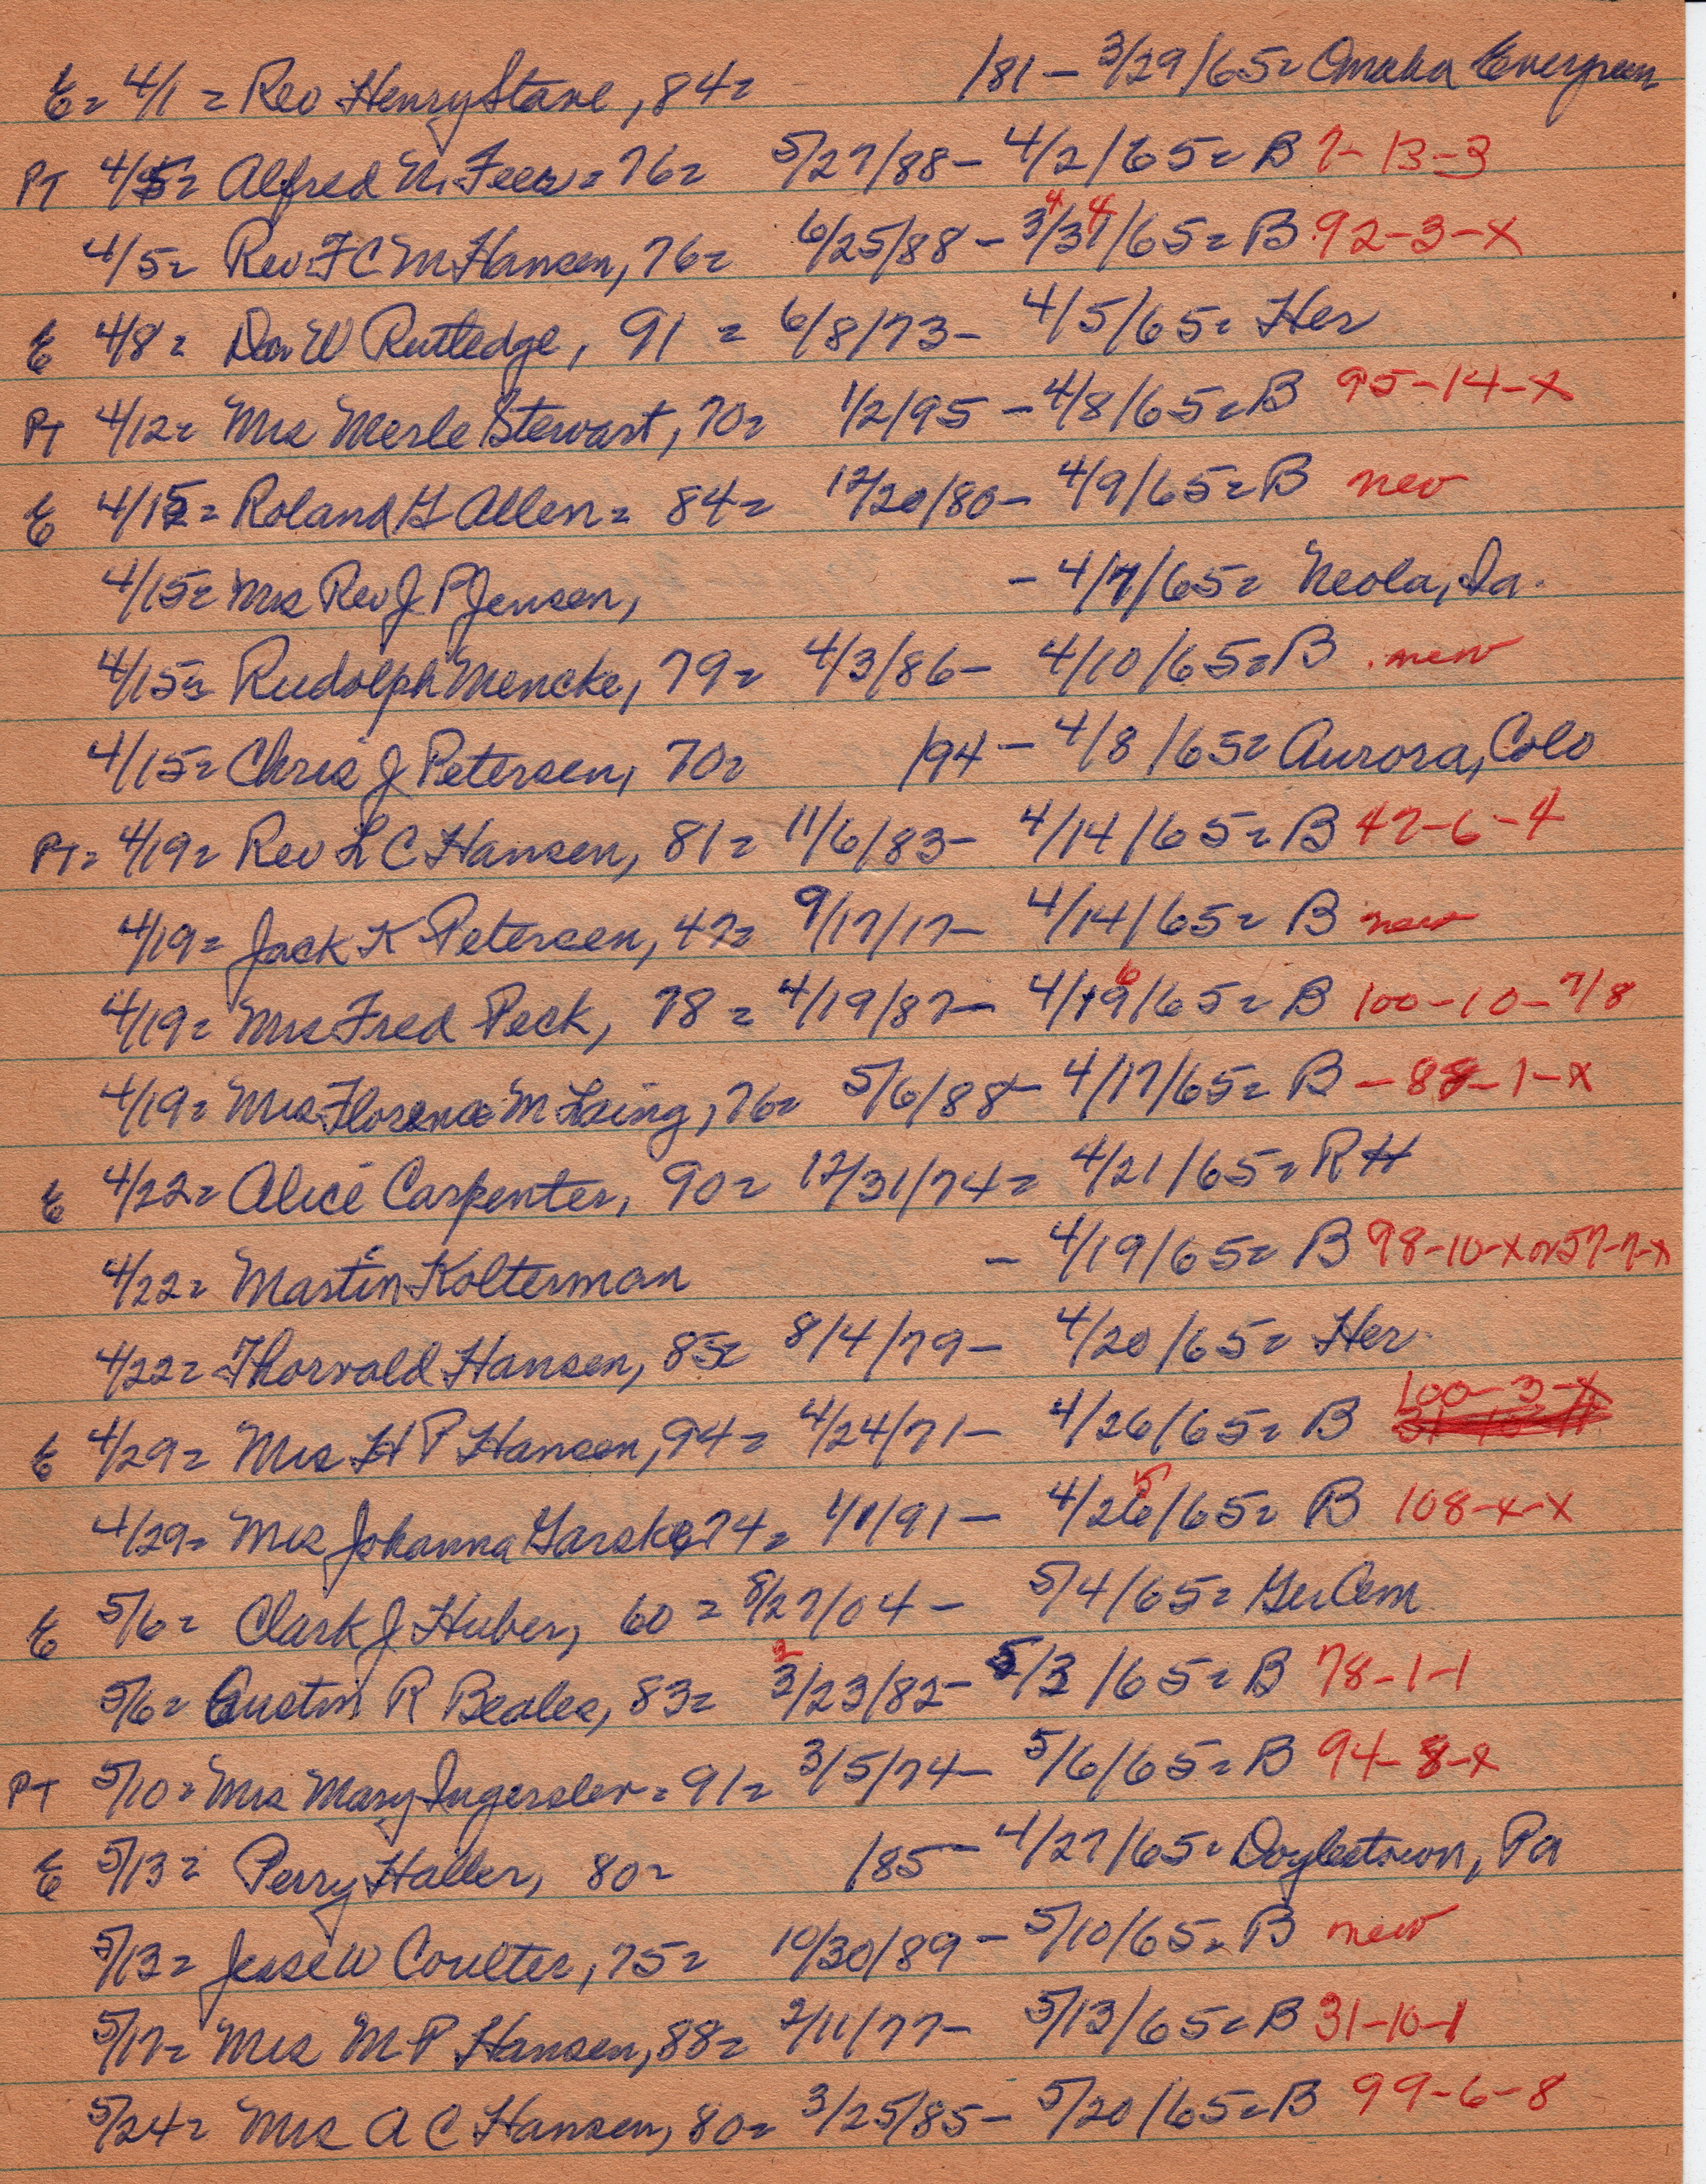 E = 4/1 = Rev Henry Stave, 84 = /81 - 3/29/65 = Omaha Evergreen
PT 4/5 = Alfred N. Feer = 76 = 5/27/88 - 4/2/65 = B 7-13-3
4/5 = Rev F C M Hansen, 76 = 6/25/88 - 3/31/65 = B 92-3-x
E 4/8 = Don W Rutledge, 91 = 6/8/73 - 4/5/65 = Her
PT 4/12 = Mrs Merle Stewart, 70 = 1/2/95 - 4/8/65 = B 95-14-x
E 4/15 = Roland G Allen = 84 = 12/20/80 - 4/9/65 = B new
4/15 = Mrs Rev J P Jensen, - 4/7/65 = Neola, Ia.
4/15 = Rudolph Mencke, 79 = 4/3/86 - 4/10/65 = B new
4/15 = Chris J Petersen, 70 = /94 - 4/8/65 = Aurora, Colo
PT = 4/19 = Rev L C Hansen, 81 = 11/6/83 - 4/14/65 = B 47-6-4
4/19 = Jack K Petersen, 47 = 9/17/17 - 4/14/65 = B new
4/19 = Mrs Fred Peck, 78 = 4/19/87 - 4/19/65 = B 100-10-7/8
4/19 = Mrs Florence M Laing, 76 = 5/6/88 - 4/17/65 = B - 88-1-x
E 4/22 = Alice Carpenter, 90 = 12/31/74 = 4/21/65 = R H
4/22 = Martin Kolterman - 4/19/65 = B 98-10-x or 57-7-x
4/22 = Thorvald Hansen, 85 = 8/4/79 - 4/20/65 = Her
E 4/29 = Mrs H P Hansen, 94 = 4/24/71 - 4/26/65 = B 100-3-x
4/29 = Mrs Johanna Garske, 74 = 1/1/91 - 4/26/65 = B 108-x-x
E 5/6 = Clark J Huber, 60 = 8/27/04 - 5/4/65 = Ger Cem
5/6 = Austin R Beales, 83 = 3/23/82 - 5/3/65 = B 78-1-1
PT 5/10 = Mrs Mary Ingerslev = 91 = 3/5/74 - 5/6/65 = B 94-8-x
E 5/13 = Perry Haller, 80 = /85 - 4/27/65 = Doylestown, Pa
5/13 = Jesse W Coulter, 75 = 10/30/89 - 5/10/65 = B new
5/17 = Mrs M P Hansen, 88 = 2/11/77 - 5/13/65 = B 31-10-1
5/24 = Mrs A C Hansen, 80 = 3/25/85 - 5/20/65 = B 99-6-8